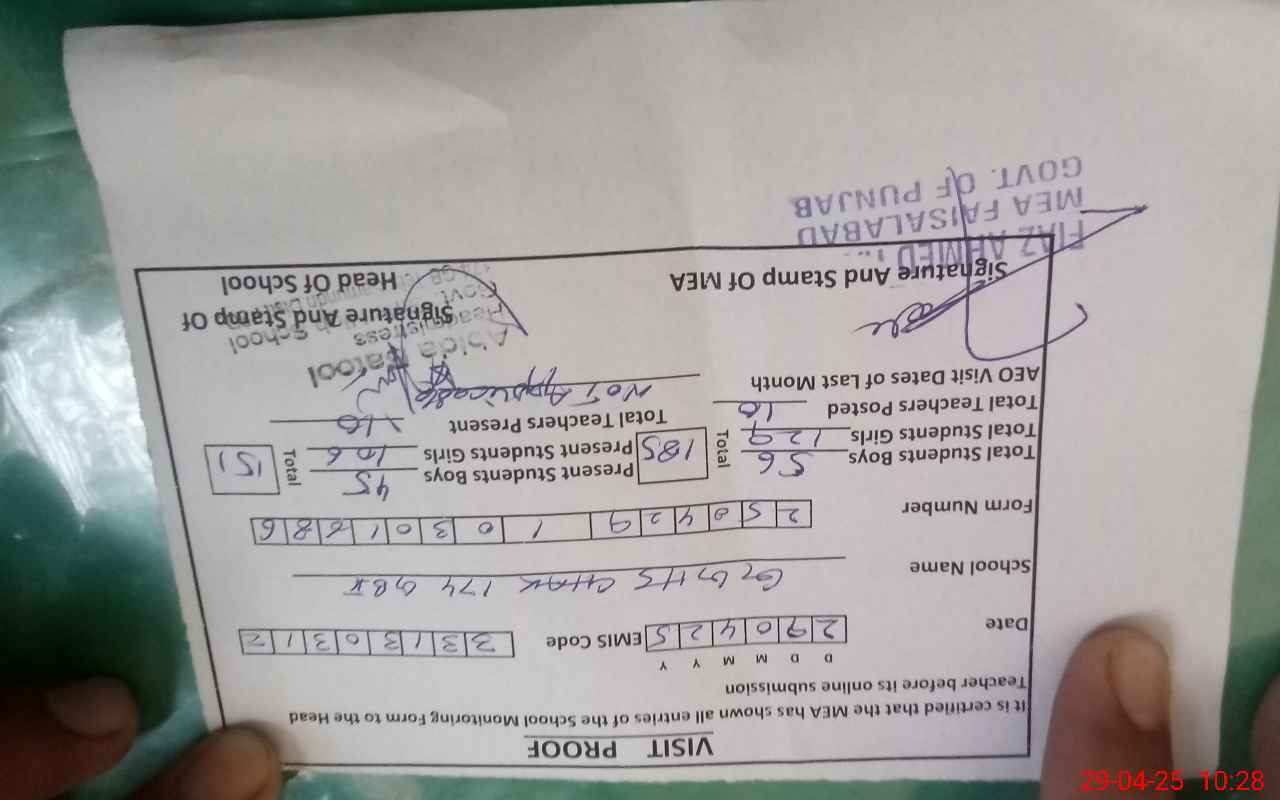 VISIT PROOF
It is certified that the MEA has shown all entries of the School Monitoring Form to the Head
Teacher before its online submission
D D M M Y Y
Date 2 9 0 4 2 5 EMIS Code 3 3 1 3 0 3 1 2
School Name GGHS CHAK 174 GB I
Form Number 2 5 0 4 2 9 1 0 3 0 1 8 8 6
Total Students Boys 56 Total 185 Present Students Boys 45 Total 151
Total Students Girls 129 Present Students Girls 106
Total Teachers Posted 10 Total Teachers Present 10
AEO Visit Dates of Last Month Not Applicable
Signature And Stamp Of MEA
Signature And Stamp Of
Head Of School
Abida Batool
Headmistress
Govt. School
FIAZ AHMED
MEA FAISALABAD
GOVT. OF PUNJAB
29-04-25 10:28